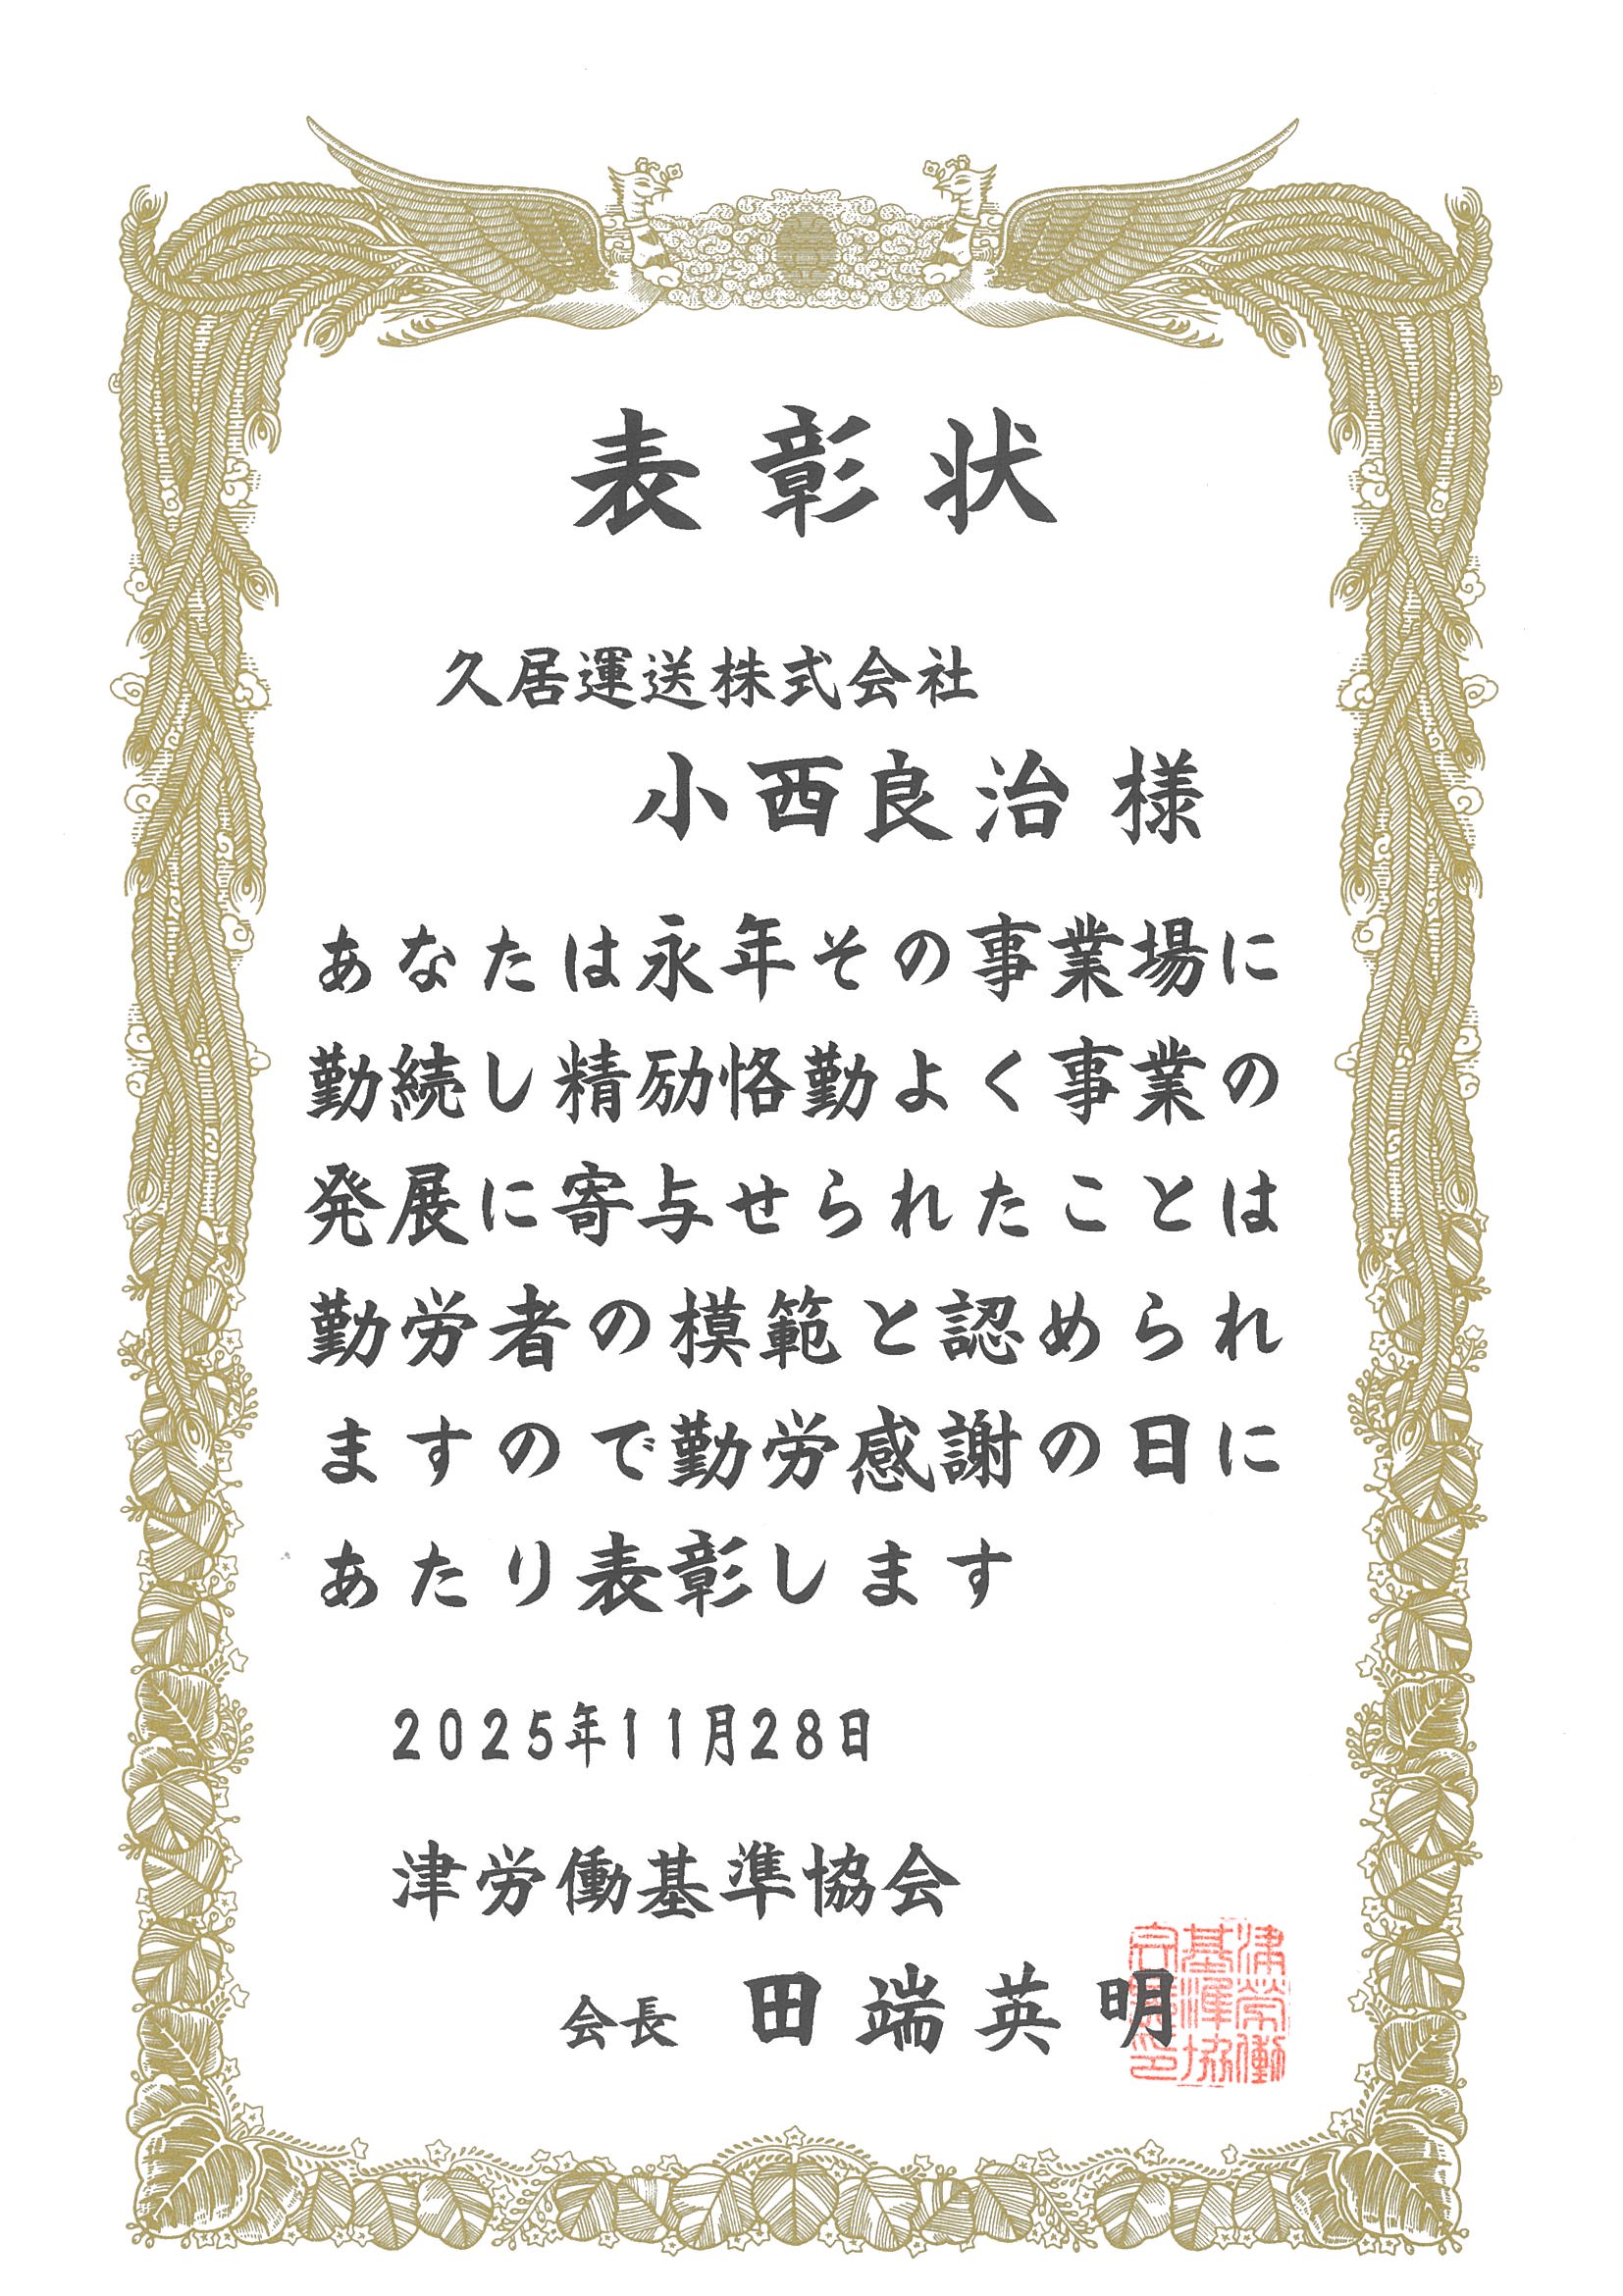 表彰状
久居運送株式会社
小西良治 様
あなたは永年その事業場に
勤続し精励恪勤よく事業の
発展に寄与せられたことは
勤労者の模範と認められ
ますので勤労感謝の日に
あたり表彰します
2025年11月28日
津労働基準協会
会長 田端英明
津労働
基準協
会長印